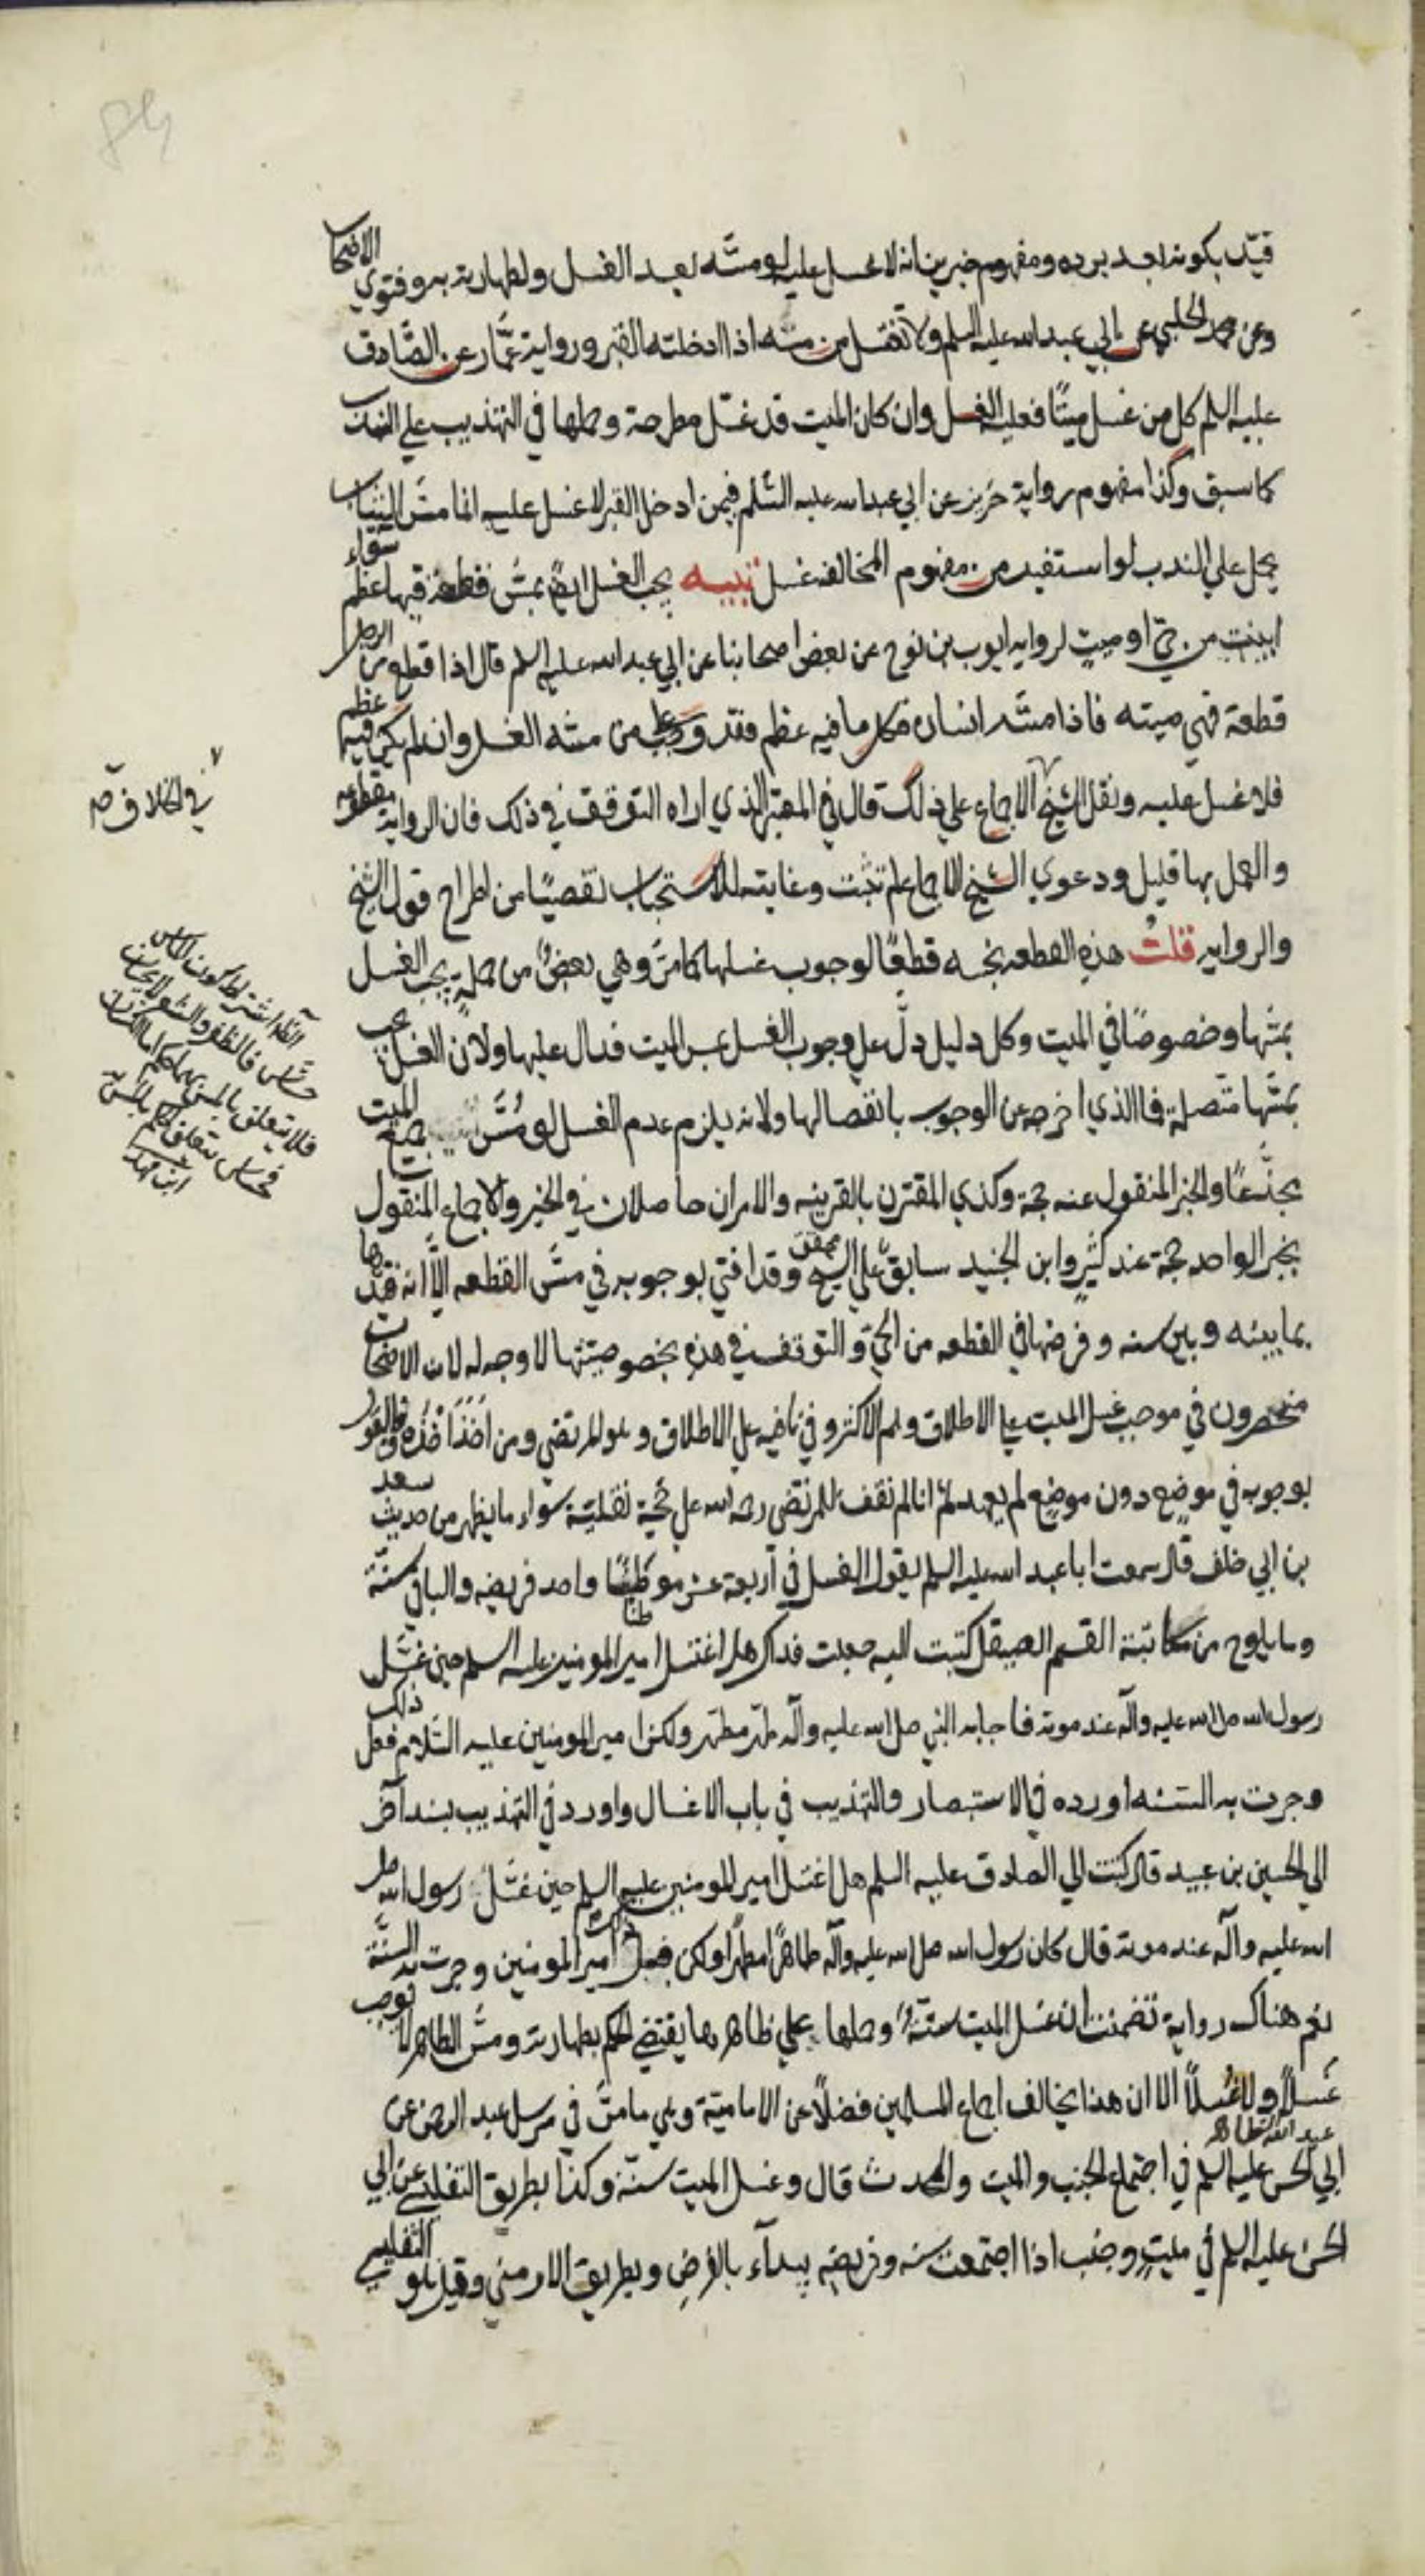 قيّد بكونه بعد برده ومفهوم خبرين انه لا غسل عليه لو مسّه بعد الغسل ولطهارته به وفتوي الاصحاب
وعن محمد الحلبي عن ابي عبد الله عليه السلم ولا تغتسل من مسه اذا ادخلته القبر ورواية عمّار عن الصّادق
عليه السلم كل من غسل ميتًا فعليه الغسل وان كان الميت قد غسّل مطرحة وحملها في التهذيب علي الندب
كما سبق وكذا مفهوم رواية حريز عن ابي عبد الله عليه السّلم فيمن ادخل القبر لا غسل عليه انما مسّ الثياب
يحمل علي الندب لو استفيد من مفهوم المخالفه غسل تنبيه يجب الغسل ايضًا بمسّ قطعة فيها عظم سواء
ابينت من حيّ او ميت لرواية ايوب بن نوح عن بعض اصحابنا عن ابي عبد الله عليه السلم قال اذا قطع من الرجل
قطعة فهي ميته فاذا مسّه انسان فكل ما فيه عظم فقد وجب على من مسّه الغسل وان لم يكن فيه عظم
فلا غسل عليه ونقل الشيخ الاجماع علي ذلك قال في المعتبر الذي اراه التوقف في ذلك فان الرواية مقطوعه
والعمل بها قليل ودعوي الشيخ الاجماع لم تثبت وغايته الاستحباب تفصيًا من اطراح قول الشيخ
والروايه قلتُ هذه القطعه نجسه قطعًا لوجوب غسلها كما مرّ وهي بعضٌ من جملةٍ يجب الغسل
بمسّها وخصوصًا في الميت وكل دليل دلّ علي وجوب الغسل بمس الميت فدال عليها ولان الغسل يجب
بمسّها متّصلة فما الذي اخرجه عن الوجوب بانفصالها ولانه يلزم عدم الغسل لو مُسَّ جميع الميت
مجتمعًا والخبر المنقول عنه حجة وكذي المقترن بالقرينه والامران حاصلان في الخبر والاجماع المنقول
بخبر الواحد حجة عند كثيرٍ وابن الجنيد سابق علي الشيخ وقد افتي بوجوبه في مسّ القطعه الّا انه قيّدها
بما بينه وبين سنه وفرضها في القطعه من الحيّ والتوقف في هذه بخصوصيتها لا وجه له لان الاصحاب
منحصرون في موجب غسل الميت علي الاطلاق وهم الاكثر وفي نافيه علي الاطلاق وهو المرتضي ومن اخذ اخذه فالقول
بوجوبه في موضع دون موضع لم يعهد ثم انا لم نقف للمرتضي رحمه الله علي حجّة نقليّة سواء ما يظهر من حديث سعد
بن ابي خلف قال سمعت ابا عبد الله عليه السلم يقول الغسل في اربعة عشر موطنًا واحد فريضه والباقي سنّة
وما يلوح من مكاتبة القسم الصيقل كتبت اليه جعلت فداك هل اغتسل امير المومنين عليه السلم حين غسّل
رسول الله صلى الله عليه وآله عند موته فاجابه النبي صلى الله عليه وآله طهر مطهر ولكن امير المومنين عليه السّلام فعل ذلك
وجرت به السّنه اورده في الاستبصار والتهذيب في باب الاغسال واورد في التهذيب بسند آخر
الي الحسين بن عبيد قال كتبت الي الصادق عليه السلم هل اغتسل امير المومنين عليه السلم حين غسّل رسول الله صلى
الله عليه وآله عند موته قال كان رسول الله صلى الله عليه وآله طاهرًا مطهرًا ولكن فعل ذلك امير المومنين وجرت به السنّة
نعم هناك رواية تضمنت ان غسل الميت سنّة وحملها علي ظاهرها يقتضي الحكم بطهارته ومسّ الطاهر لا يوجب
غَسلًا ولا غُسلًا الا ان هذا يخالف اجماع المسلمين فضلًا عن الاماميّة وهي ما مرّ في مرسل عبد الرحمن عن
ابي الحسن عليه السلم في اجتماع الجنب والميت والمحدث قال وغسل الميت سنّة وكذا بطريق التفليسي عن ابي
الحسن عليه السلم في ميتٍ وجنب اذا اجتمعت سنه وفريضه يبداء بالفرض وبطريق الارمني وقيل هو التفليسي
في الخلاف صح